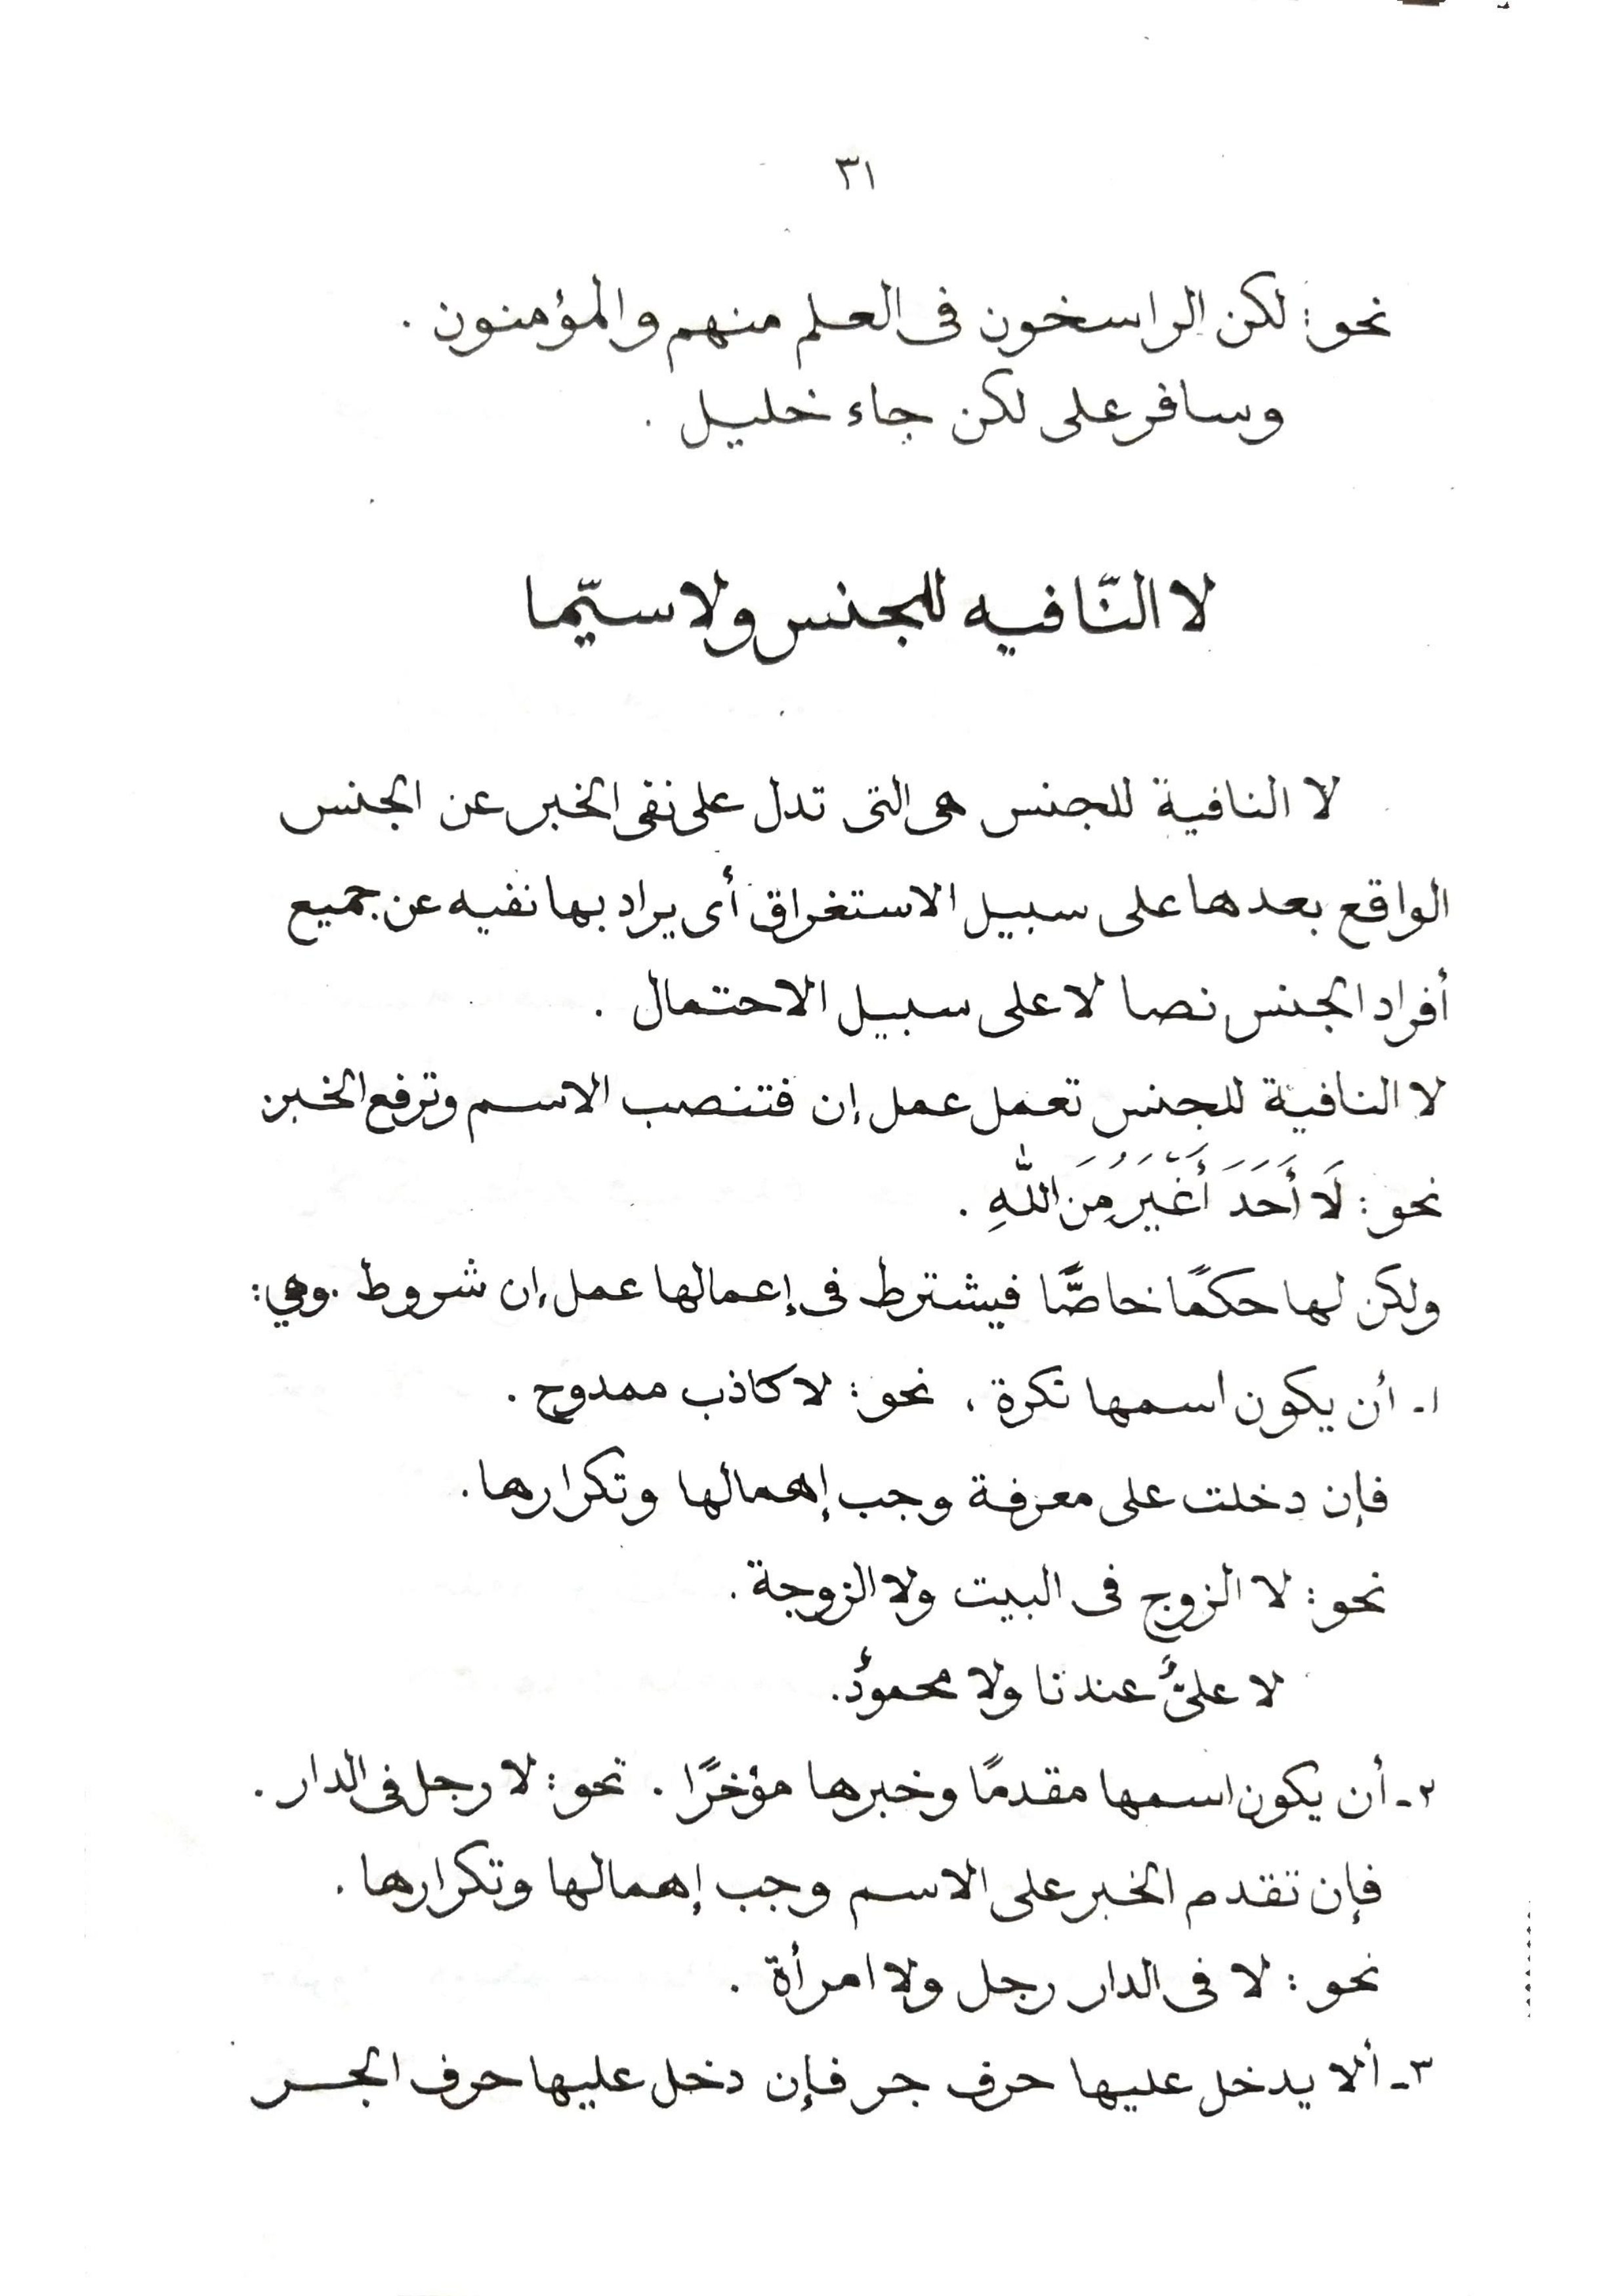 ٣١
نحو: لكن الراسخون فى العلم منهم والمؤمنون .
وسافر على لكن جاء خليل .
لا النّافيه للجنس ولا سيّما
لا النافية للجنس هى التى تدل على نفى الخبر عن الجنس
الواقع بعدها على سبيل الاستغراق أى يراد بها نفيه عن جميع
أفراد الجنس نصا لا على سبيل الاحتمال .
لا النافية للجنس تعمل عمل إن فتنصب الاسم وترفع الخبر
نحو: لَا أَحَدَ أَغْيَرُ مِنَ اللّٰهِ .
ولكن لها حكمًا خاصًّا فيشترط فى إعمالها عمل إن شروط .وهي:
١- أن يكون اسمها نكرة ، نحو: لا كاذب ممدوح .
فإن دخلت على معرفة وجب إهمالها وتكرارها.
نحو: لا الزوج فى البيت ولا الزوجة.
لا علىٌّ عندنا ولا محمودٌ.
٢- أن يكون اسمها مقدمًا وخبرها مؤخرًا . نحو: لا رجل فى الدار .
فإن تقدم الخبر على الاسم وجب إهمالها وتكرارها .
نحو: لا فى الدار رجل ولا امرأة .
٣- ألا يدخل عليها حرف جر فإن دخل عليها حرف الجر